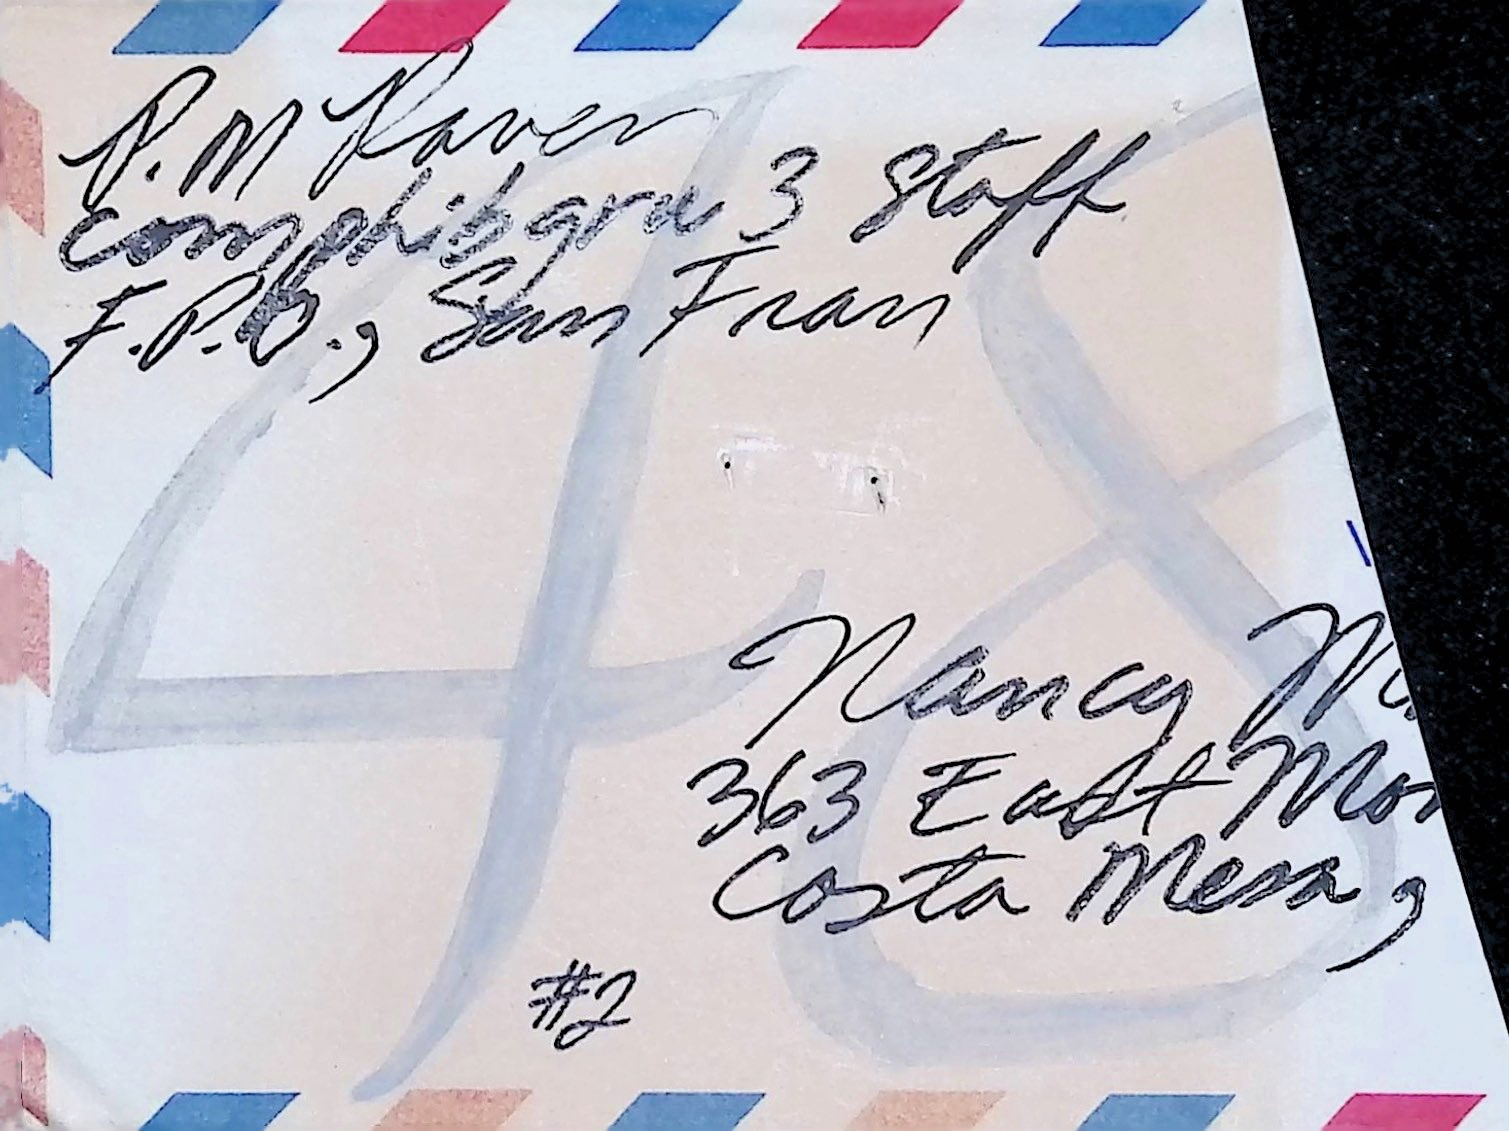 P. M Raven
comphibgru 3 Staff
F.P.O., San Fran
48
Nancy
363 East
Costa Mesa,
#2